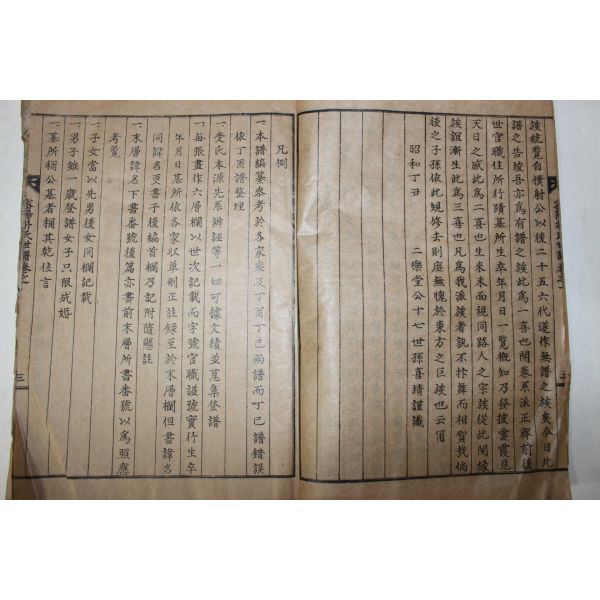 族統覽自僕射公以後二十五六代遂作無譜之族矣今日此
譜之告竣吾亦爲有譜之族此爲一喜也開卷系派正齊前後
世官職住所行蹟墓所生卒年月日一覽槪知乃發援雲霞見
天日之感此爲二喜也生來未面視同路人之宗族從此開綾
族誼漸生此爲三喜也凡爲我派族者孰不抃舞而相賀哉倘
後之子孫依此規修去則庶無愧於東方之巨族也云爾
昭和丁丑 二樂堂公十七世孫喜靖謹識
凡例
一本譜編纂參考於各家乘及丁酉丁巳兩譜而丁巳譜錯誤
依丁酉譜整理
一受氏本源先系辨誣等一切可據文績並蒐集登譜
一每張畫作六層欄以世次記載而字號官職諡號實行生卒
年月日墓所依各家收單刪正註錄至於末層欄但書諱名
同諱名更書于後編首欄乃記附隨懸註
一末層諱名下書番號後篇亦書前末層所書番號以爲照應
考覽
一子女當以先男後女同欄記載
一男子雖一歲登譜女子只限成婚
一墓所稱公墓者稱其乾位言
世譜卷之
三